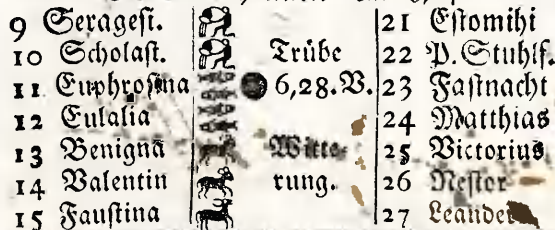 9 Seragesi. 21 Estomihi
10 Scholast. Trübe 22 P. Stuhlf.
11 Euphrosina 6,28. V. 23 Fastnacht
12 Eulalia 24 Matthias
13 Benigna Witte- 25 Victorius
14 Valentin rung. 26 Nestor
15 Faustina 27 Leander